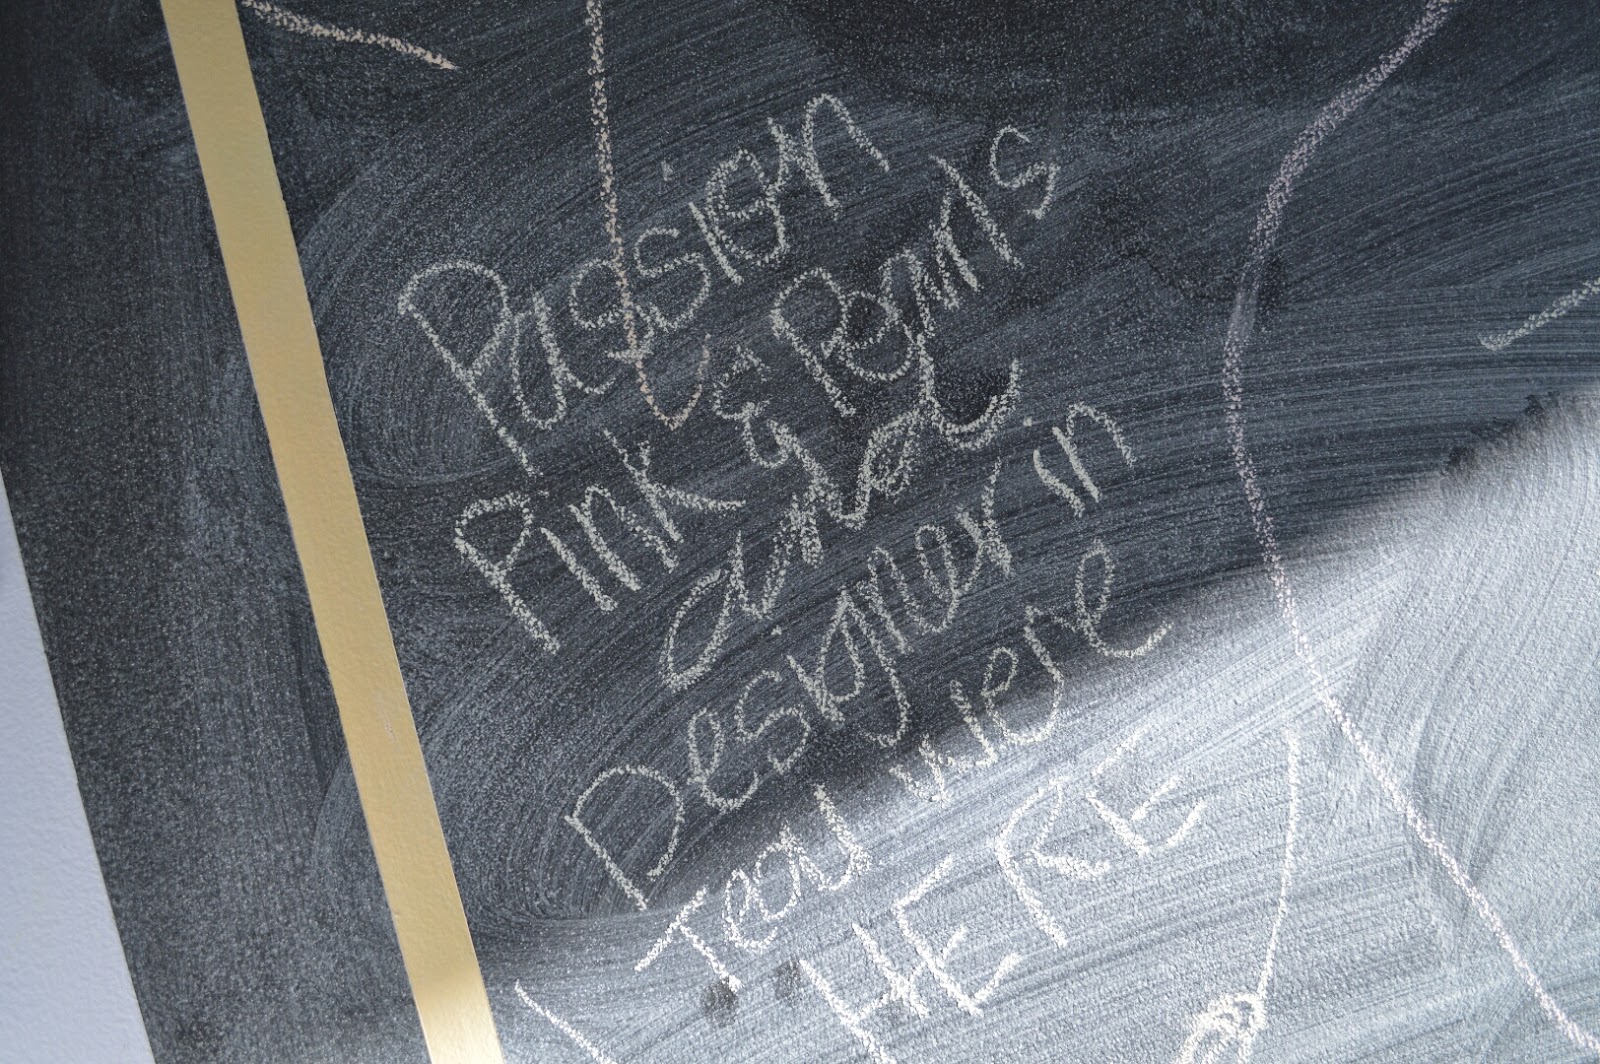 Passion
Pink & Pearls
and
Designer in
Teal were
HERE